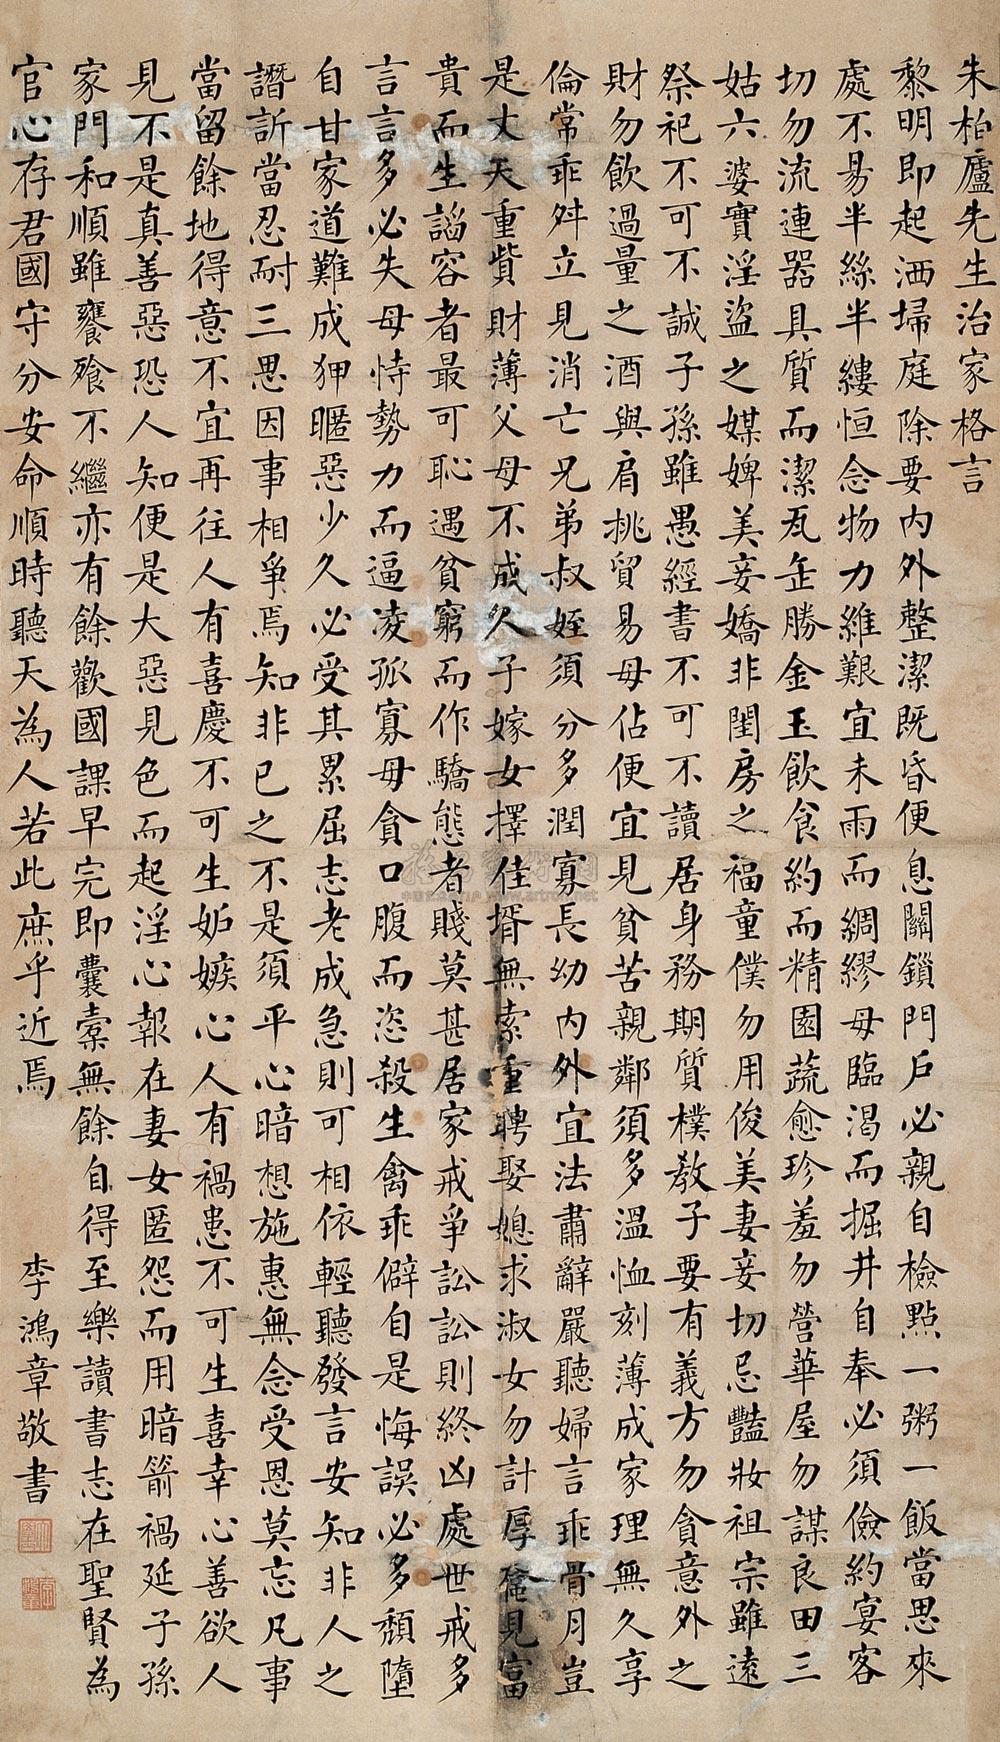 朱柏廬先生治家格言
黎明即起洒埽庭除要内外整潔既昏便息關鎖門戶必親自檢點一粥一飯當思來
處不易半絲半縷恒念物力維艱宜未雨而綢繆毋臨渴而掘井自奉必須儉約宴客
切勿流連器具質而潔瓦缶勝金玉飲食約而精園蔬愈珍羞勿營華屋勿謀良田三
姑六婆實淫盜之媒婢美妾嬌非閨房之福童僕勿用俊美妻妾切忌豔妝祖宗雖遠
祭祀不可不誠子孫雖愚經書不可不讀居身務期質樸教子要有義方勿貪意外之
財勿飲過量之酒與肩挑貿易毋佔便宜見貧苦親鄰須多溫恤刻薄成家理無久享
倫常乖舛立見消亡兄弟叔姪須分多潤寡長幼内外宜法肅辭嚴聽婦言乖骨月豈
是丈夫重貲財薄父母不成人子嫁女擇佳壻無索重聘娶媳求淑女勿計厚奩見富
貴而生諂容者最可恥遇貧窮而作驕態者賤莫甚居家戒爭訟訟則終凶處世戒多
言言多必失毋恃勢力而逼凌孤寡毋貪口腹而恣殺生禽乖僻自是悔誤必多頹墮
自甘家道難成狎暱惡少久必受其累屈志老成急則可相依輕聽發言安知非人之
譖訴當忍耐三思因事相爭焉知非己之不是須平心暗想施惠無念受恩莫忘凡事
當留餘地得意不宜再往人有喜慶不可生妬嫉心人有禍患不可生喜幸心善欲人
見不是真善惡恐人知便是大惡見色而起淫心報在妻女匿怨而用暗箭禍延子孫
家門和順雖饔飧不繼亦有餘歡國課早完即囊橐無餘自得至樂讀書志在聖賢為
官心存君國守分安命順時聽天為人若此庶乎近焉
李鴻章敬書